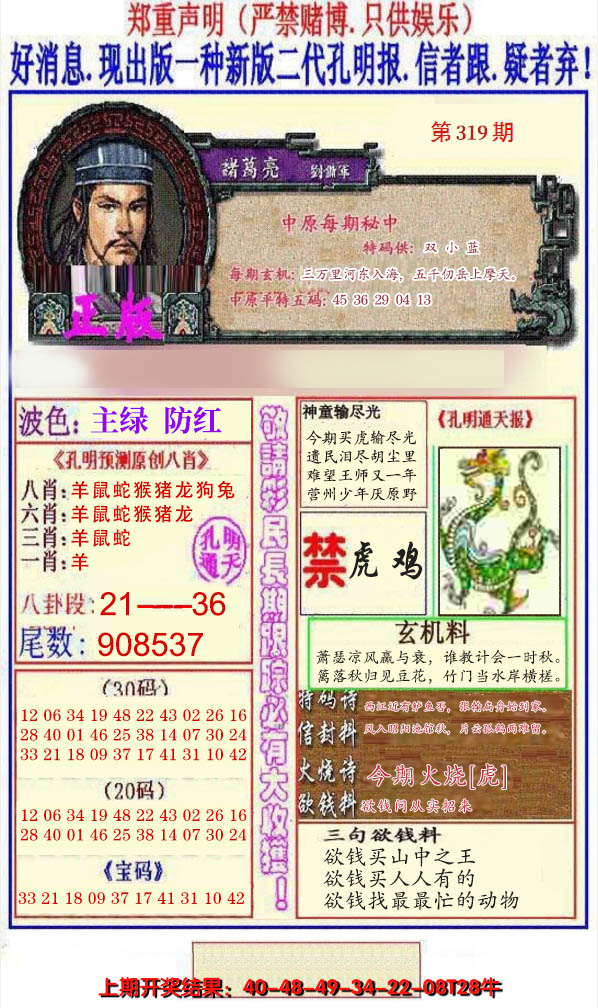 郑重声明（严禁赌博.只供娱乐）
好消息.现出版一种新版二代孔明报.信者跟.疑者弃！
第319期
諸葛亮 劉備軍
中原每期秘中
特码供：双 小 蓝
每期玄机：三万里河东入海，五千仞岳上摩天。
中原平特五码：45 36 29 04 13
正版
波色：主绿 防红
《孔明预测原创八肖》
八肖：羊鼠蛇猴猪龙狗兔
六肖：羊鼠蛇猴猪龙
三肖：羊鼠蛇
一肖：羊
孔明
通天
八卦段：21——36
尾数：908537
（30码）
12 06 34 19 48 22 43 02 26 16
28 40 01 46 25 38 14 07 30 24
33 21 18 09 37 17 41 31 10 42
（20码）
12 06 34 19 48 22 43 02 26 16
28 40 01 46 25 38 14 07 30 24
《宝码》
33 21 18 09 37 17 41 31 10 42
敬請彩民長期跟踪必有大收獲！
神童输尽光
今期买虎输尽光
遗民泪尽胡尘里
难望王师又一年
营州少年厌原野
《孔明通天报》
禁 虎 鸡
玄机料
萧瑟凉风赢与衰，谁教计会一时秋。
篱落秋归见豆花，竹门当水岸横槎。
特码诗
西江近有鲈鱼否，张翰扁舟始到家。
信封料
风入昭阳池馆秋，片云孤鹤两难留。
火烧诗
今期火烧[虎]
欲钱料
欲钱问从实招来
三句欲钱料
欲钱买山中之王
欲钱买人人有的
欲钱找最最忙的动物
上期开奖结果：40-48-49-34-22-08T28牛